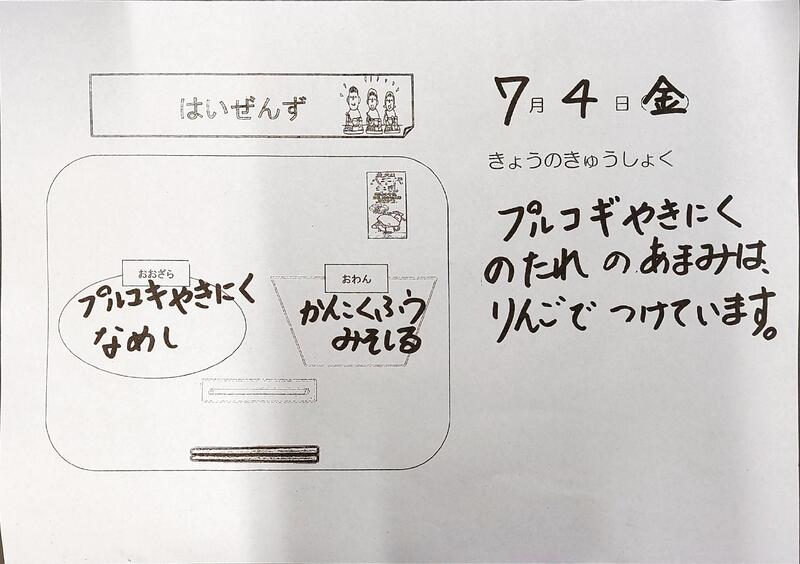 はいぜんず
7月4日金
きょうのきゅうしょく
プルコギやきにく
のたれのあまみは、
りんごでつけています。
おおざら
プルコギやきにく
なめし
おわん
かんこくふう
みそしる